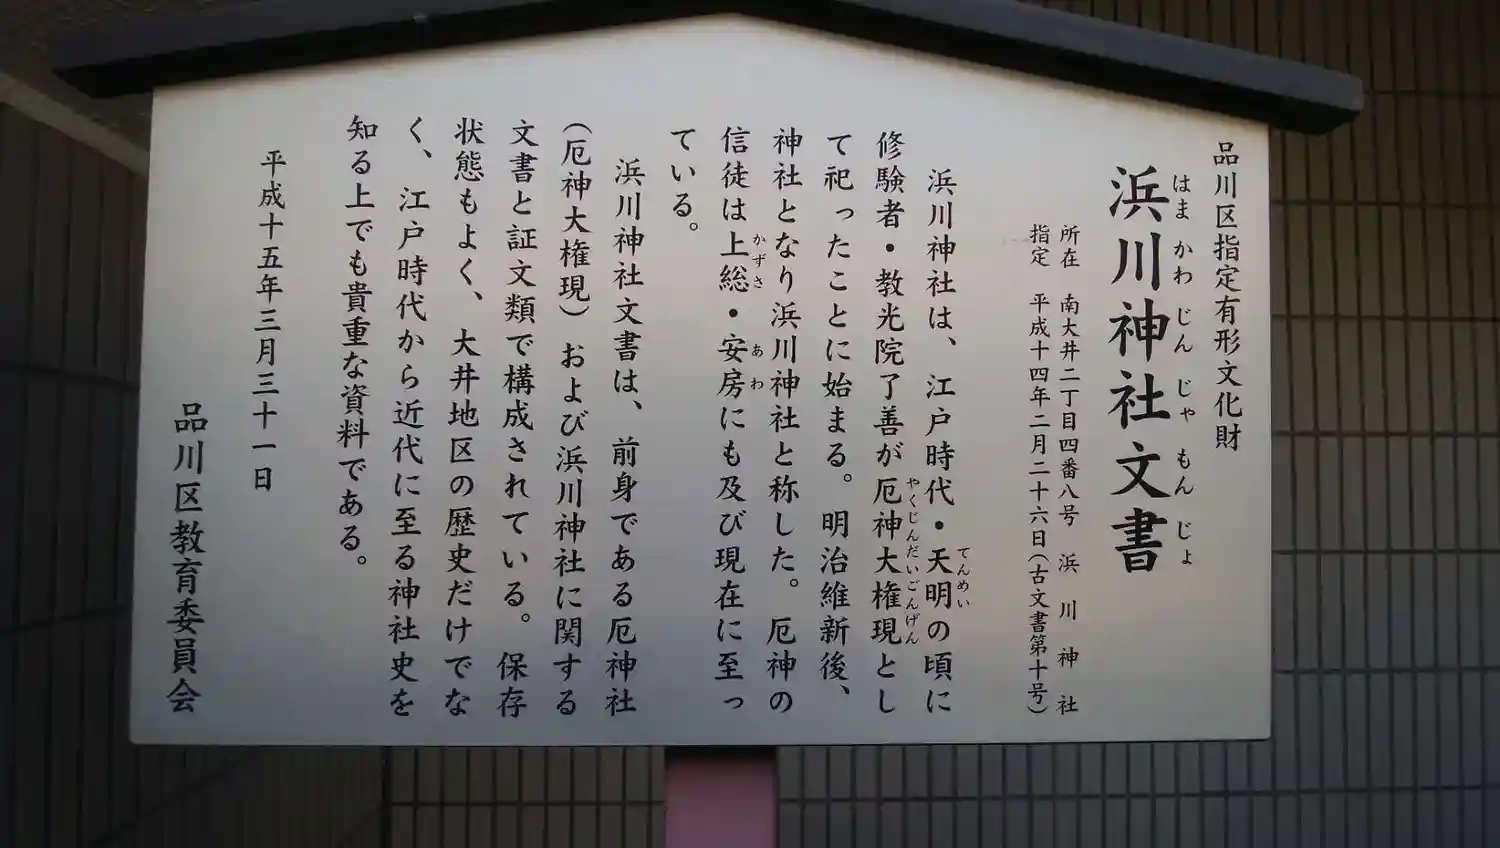 品川区指定有形文化財
浜川神社文書
はまかわじんじゃもんじょ
所在　南大井二丁目四番八号　浜川神社
指定　平成十四年二月二十六日（古文書第十号）
浜川神社は、江戸時代・天明の頃に
てんめい
修験者・教光院了善が厄神大権現とし
やくじんだいごんげん
て祀ったことに始まる。明治維新後、
神社となり浜川神社と称した。厄神の
信徒は上総・安房にも及び現在に至っ
かずさ　あわ
ている。
浜川神社文書は、前身である厄神社
（厄神大権現）および浜川神社に関する
文書と証文類で構成されている。保存
状態もよく、大井地区の歴史だけでな
く、江戸時代から近代に至る神社史を
知る上でも貴重な資料である。
平成十五年三月三十一日
品川区教育委員会